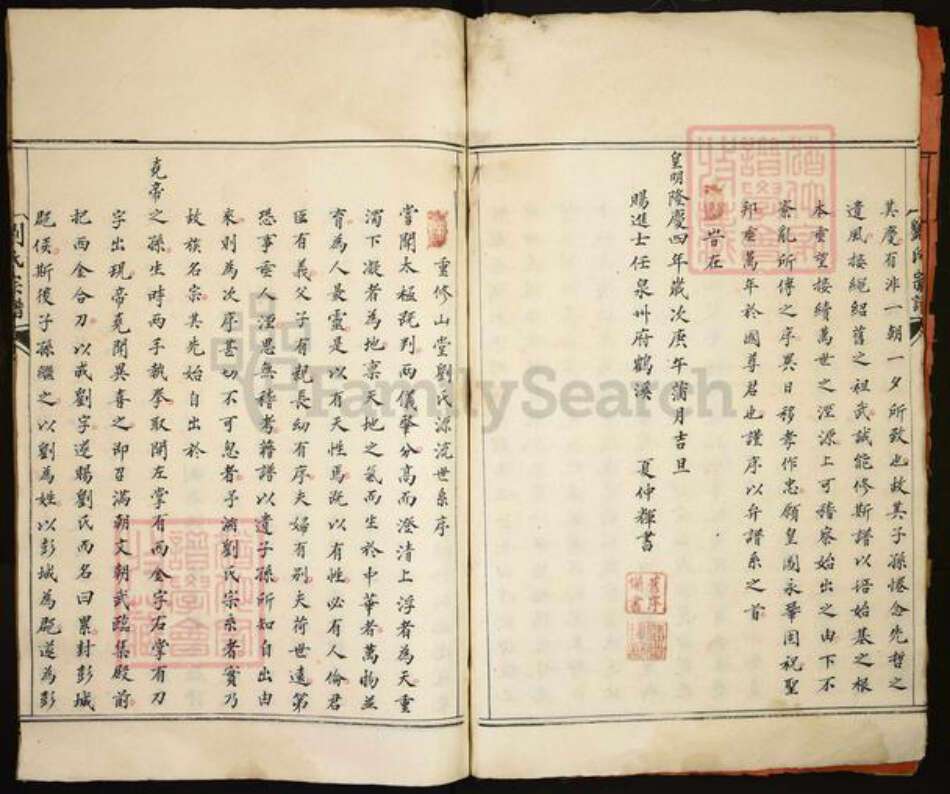 其慶有非一朝一夕所致也故其子孫惓念先哲之
遺風接繩紹舊之祖武誠能修斯譜以培始基之根
本重望接續萬世之淫源上可稽察始出之由下不
紊亂所傳之序異日移孝作忠願皇圖永鞏固祝聖
邦垂萬年於國尊君也謹序以弁譜系之首
旹在
皇明隆慶四年歲次庚午蒲月吉旦
賜進士任泉州府鶴溪 夏仲輝書
重修山堂劉氏源流世系序
嘗聞太極既判兩儀肇分高而澄清上浮者為天重
濁下凝者為地稟天地之氣而生於中華者萬物並
育為人最靈是以有天性焉既以有性必有人倫君
臣有義父子有親長幼有序夫婦有別夫荷世遠第
恐事垂人湮思無稽考籍譜以遺子孫所知自出由
來則為次序甚切不可忽者予溯劉氏宗系者實乃
故族名宗其先始自出於
堯帝之孫生時兩手執拳取開左掌有西金字右掌有刀
字出現帝堯聞異喜之即召滿朝文朝武臨集殿前
把西金合刀以成劉字遂賜劉氏而名曰累封彭城
郡侯斯後子孫繼之以劉為姓以彭城為郡遂為彭
劉氏宗譜
劉氏宗譜
FamilySearch